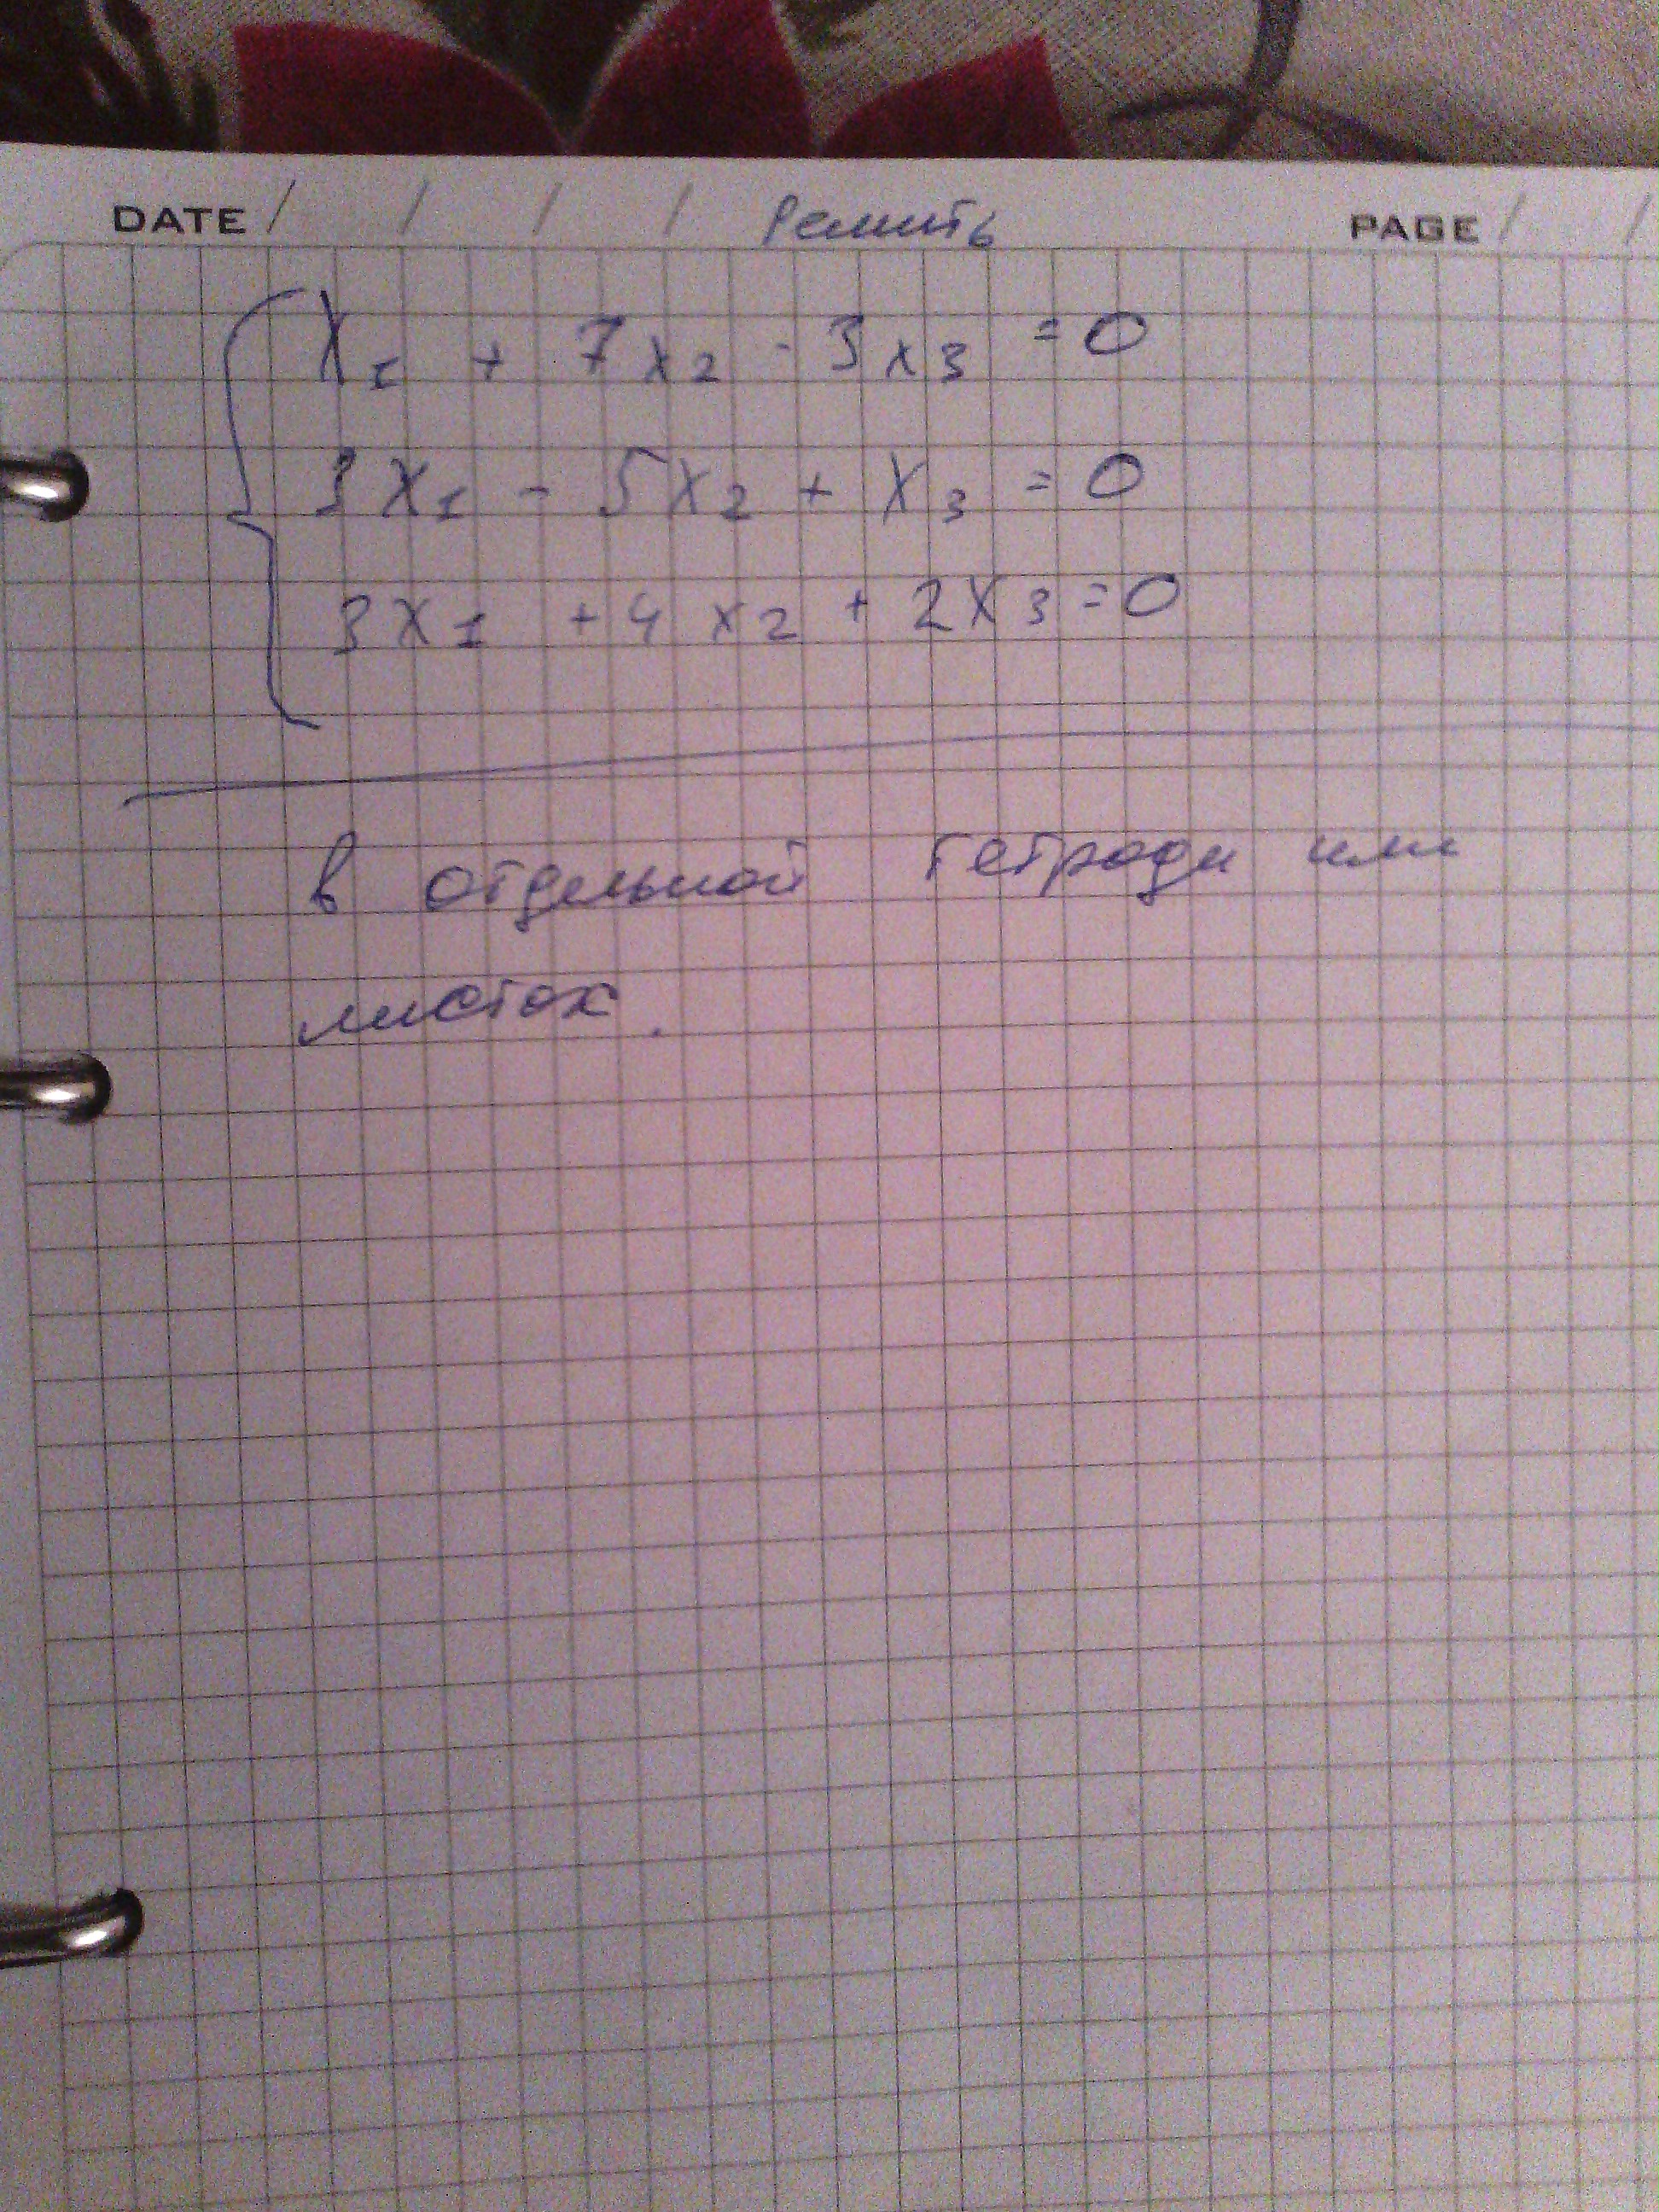 DATE / / / / Решить PAGE / /
x₁ + 7x₂ - 3x₃ = 0
3x₁ - 5x₂ + x₃ = 0
3x₁ + 4x₂ + 2x₃ = 0
в отдельной тетроди или
листок.